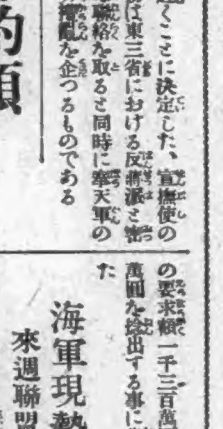 くことに決定した、宣撫使の
は東三省における反蔣派と密
聯絡を取ると同時に奉天軍の
擾亂を企つるものである
的願
の要求額一千三百萬圓
萬圓を捻出する事に
た
海軍現勢
來週聯盟